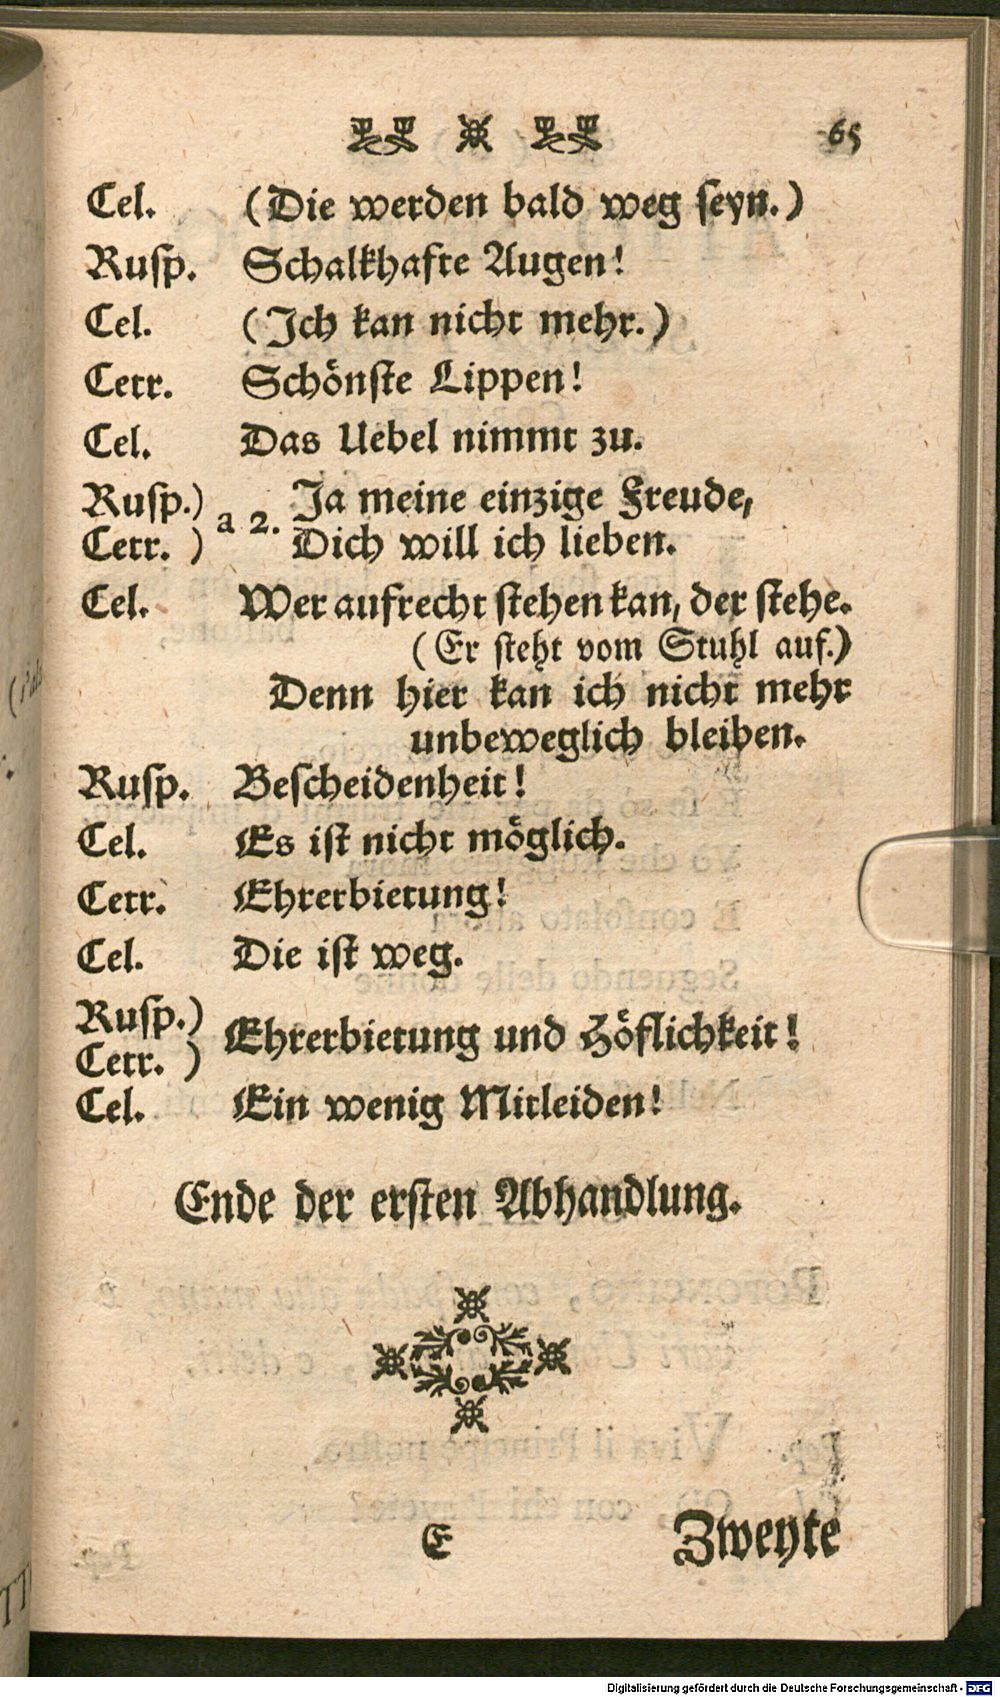 65
Cel. (Die werden bald weg seyn.)
Rusp. Schalkhafte Augen!
Cel. (Ich kan nicht mehr.)
Cerr. Schönste Lippen!
Cel. Das Uebel nimmt zu.
Rusp.) a 2. Ja meine einzige Freude,
Cerr. ) Dich will ich lieben.
Cel. Wer aufrecht stehen kan, der stehe.
(Er steht vom Stuhl auf.)
Denn hier kan ich nicht mehr
unbeweglich bleiben.
Rusp. Bescheidenheit!
Cel. Es ist nicht möglich.
Cerr. Ehrerbietung!
Cel. Die ist weg.
Rusp.) Ehrerbietung und Höflichkeit!
Cerr. )
Cel. Ein wenig Mitleiden!
Ende der ersten Abhandlung.
E Zweyte
Digitalisierung gefördert durch die Deutsche Forschungsgemeinschaft - DFG